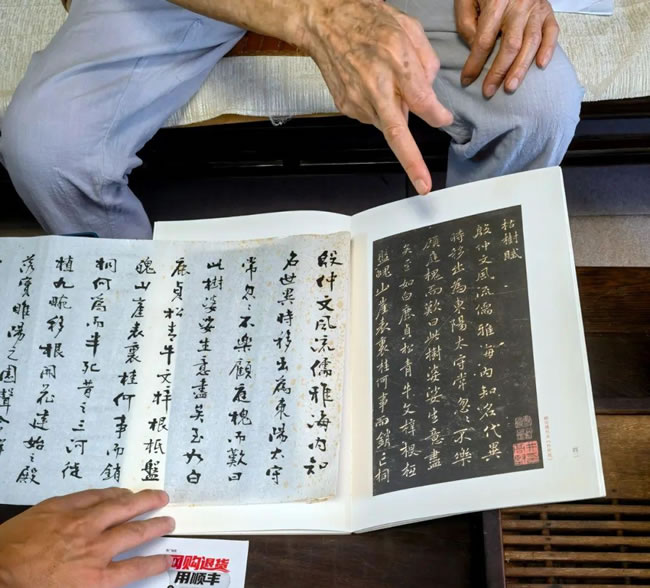 枯樹賦
殷仲文風流儒雅海內知名代異
時移出為東陽太守常忽〻不樂
顧庭槐而歎曰此樹婆娑生意盡
矣至如白鹿貞松青牛文梓根柢
盤魄山崖表裏桂何事而銷亡桐
殷仲文風流儒雅海內知
名世異時移出為東陽太守
常忽〻不樂顧庭槐而歎曰
此樹婆娑生意盡矣至如白
鹿貞松青牛文梓根柢盤
魄山崖表裏桂何事而銷
桐何為而半死昔之三河徙
植九畹移根開花建始之殿
落實睢陽之園聲含
网购退货
用顺丰